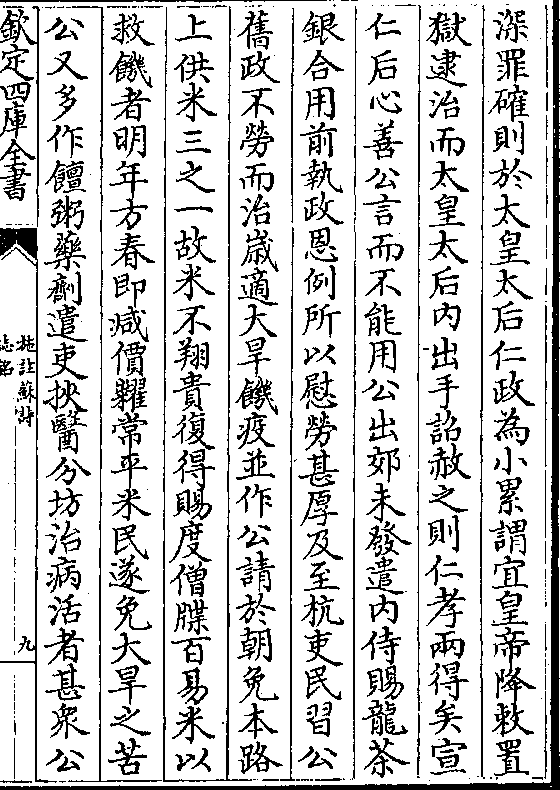 深罪確則於太皇太后仁政為小累謂宜皇帝降敕置
獄逮治而太皇太后内出手詔赦之則仁孝兩得矣宣
仁后心善公言而不能用公出郊未發遣内侍賜龍茶
銀合用前執政恩例所以慰勞甚厚及至杭吏民習公
舊政不勞而治嵗適大旱饑疫並作公請於朝免本路
上供米三之一故米不翔貴復得賜度僧牒百易米以
救饑者明年方春即減價糶常平米民遂免大旱之苦
公又多作饘粥藥劑遣吏挾醫分坊治病活者甚衆公
欽定四庫全書
施註蘇詩
誌銘
九